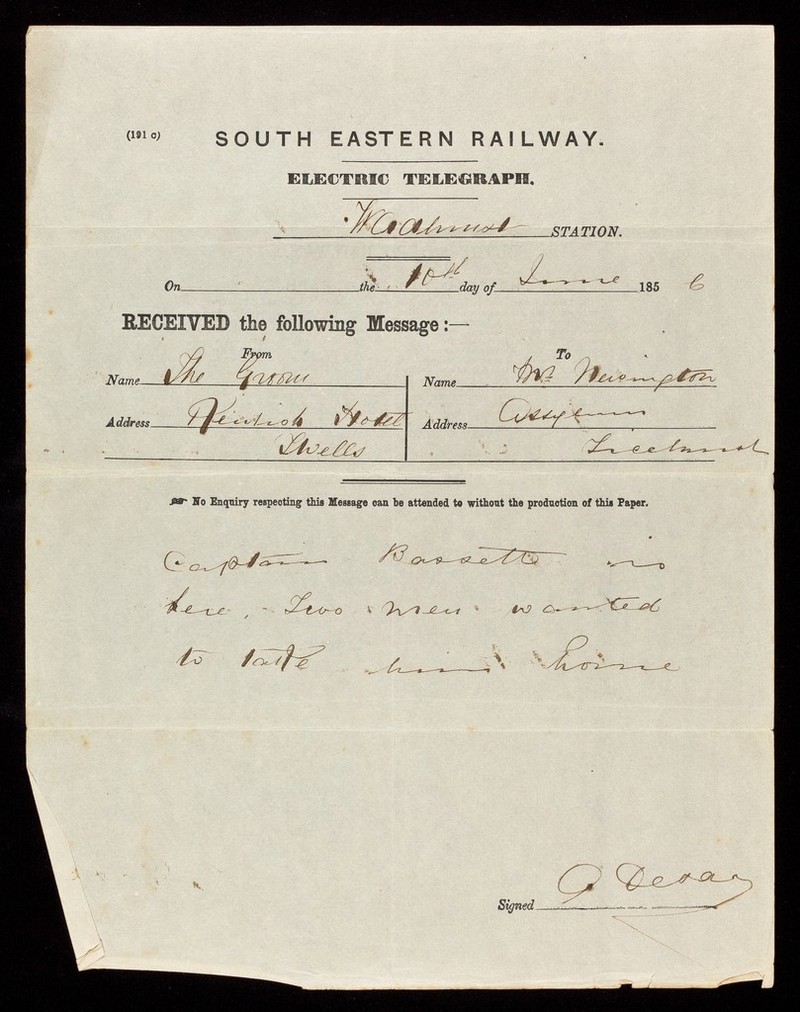 (191 c) SOUTH EASTERN RAILWAY.
ELECTRIC TELEGRAPH.
Wadhurst STATION.
On the 10th day of June 1856
RECEIVED the following Message :—
From To
Name The Groom Name Mr
Address Kentish Hotel Address Assylum
TWells Ticehurst
No Enquiry respecting this Message can be attended to without the production of this Paper.
Captain Bassett is
here, Two men wanted
to take him home
Signed